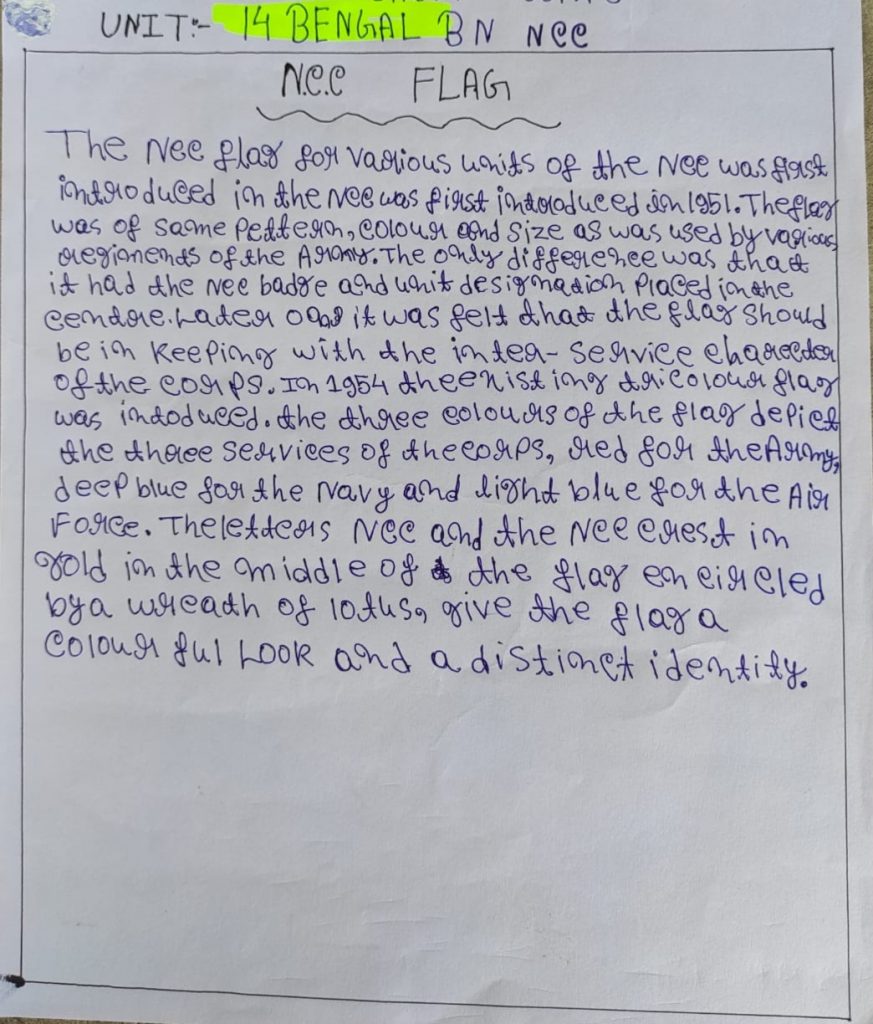 UNIT:- 14 BENGAL BN NCC
N.C.C FLAG
The NCC flag for various units of the NCC was first
introduced in the NCC was first introduced in 1951. The flag
was of same Pettern, colour and size as was used by various
regiments of the Army. The only difference was that
it had the NCC badge and unit designation Placed in the
centre. Later it was felt that the flag should
be in keeping with the inter-service charecter
of the corps. In 1954 the existing tricolour flag
was intoduced. the three colours of the flag depict
the three services of the corps, red for the Army,
deep blue for the Navy and light blue for the Air
Force. The letters NCC and the NCC crest in
gold in the middle of the flag encircled
by a wreath of lotus, give the flag a
colourful Look and a distinct identity.